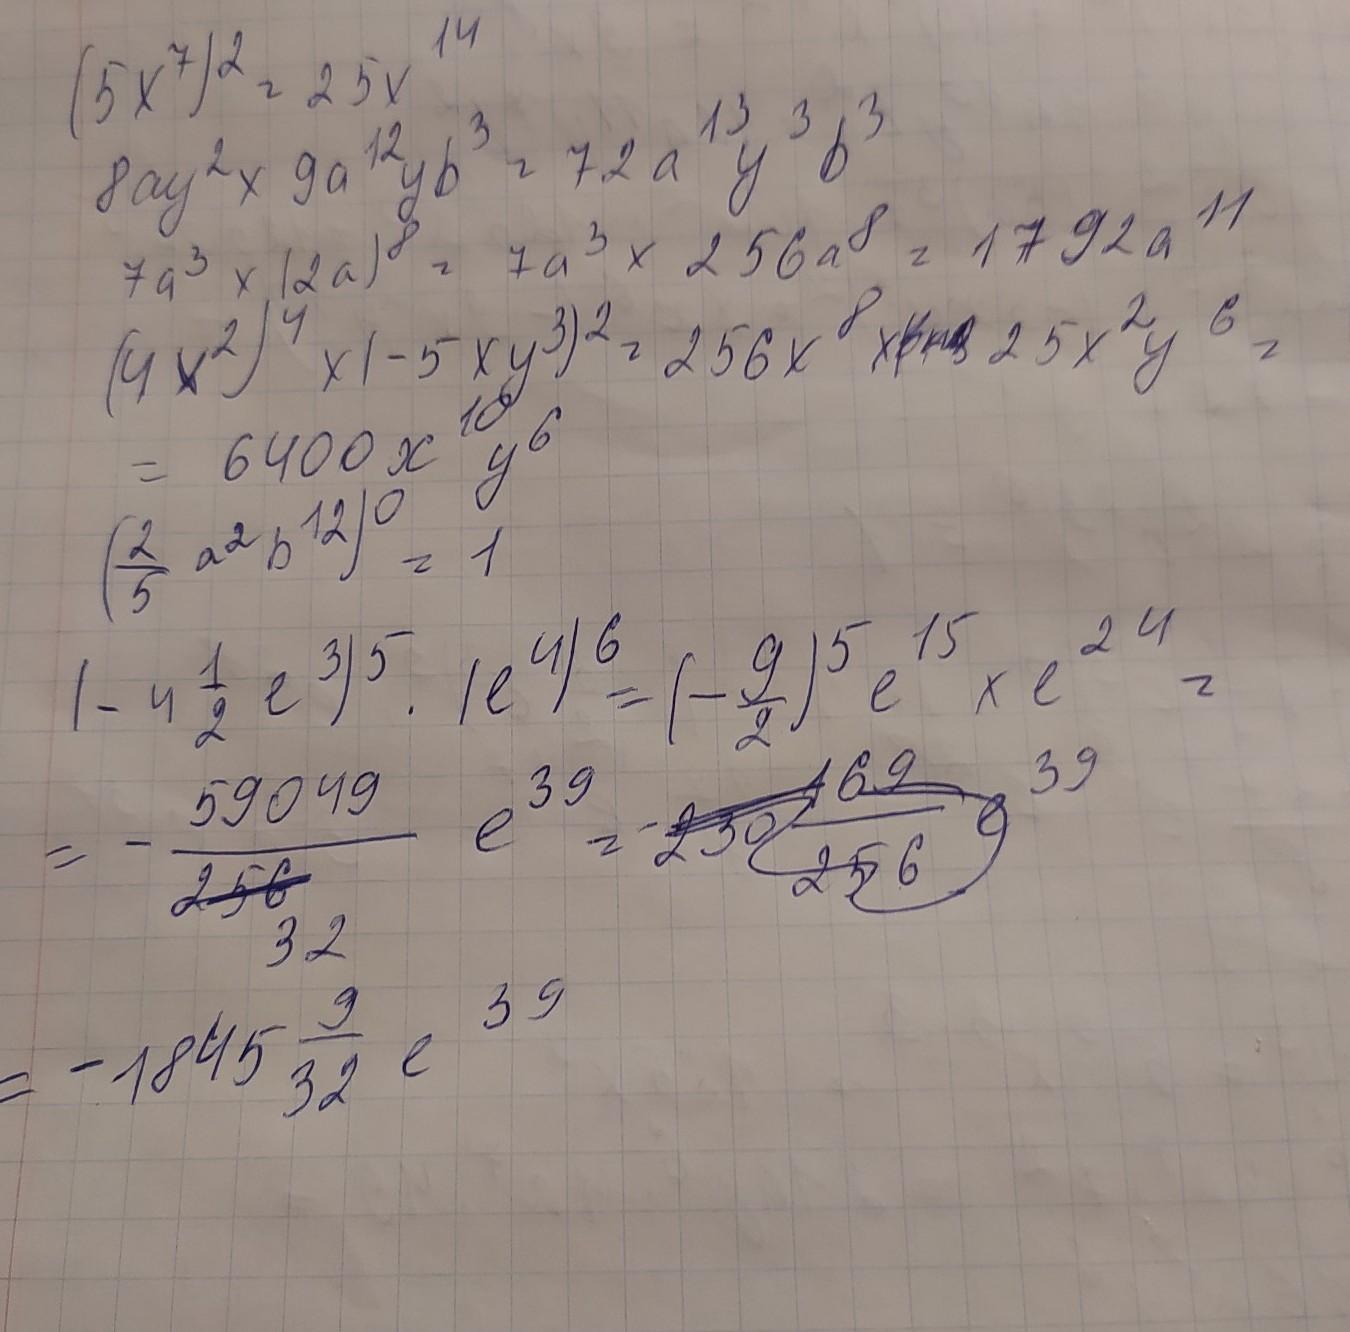 (5x⁷)² = 25x¹⁴
8ay² x 9a¹²yb³ = 72a¹³y³b³
7a³ x (2a)⁸ = 7a³ x 256a⁸ = 1792a¹¹
(4x²)⁴ x (-5xy³)² = 256x⁸ x 25x²y⁶ =
= 6400x¹⁰y⁶
(2/5 a²b¹²)⁰ = 1
(-4 1/2 e³)⁵ · (e⁴)⁶ = (-9/2)⁵ e¹⁵ x e²⁴ =
= - 59049/32 e³⁹ = -230 169/256 e³⁹
= -1845 9/32 e³⁹